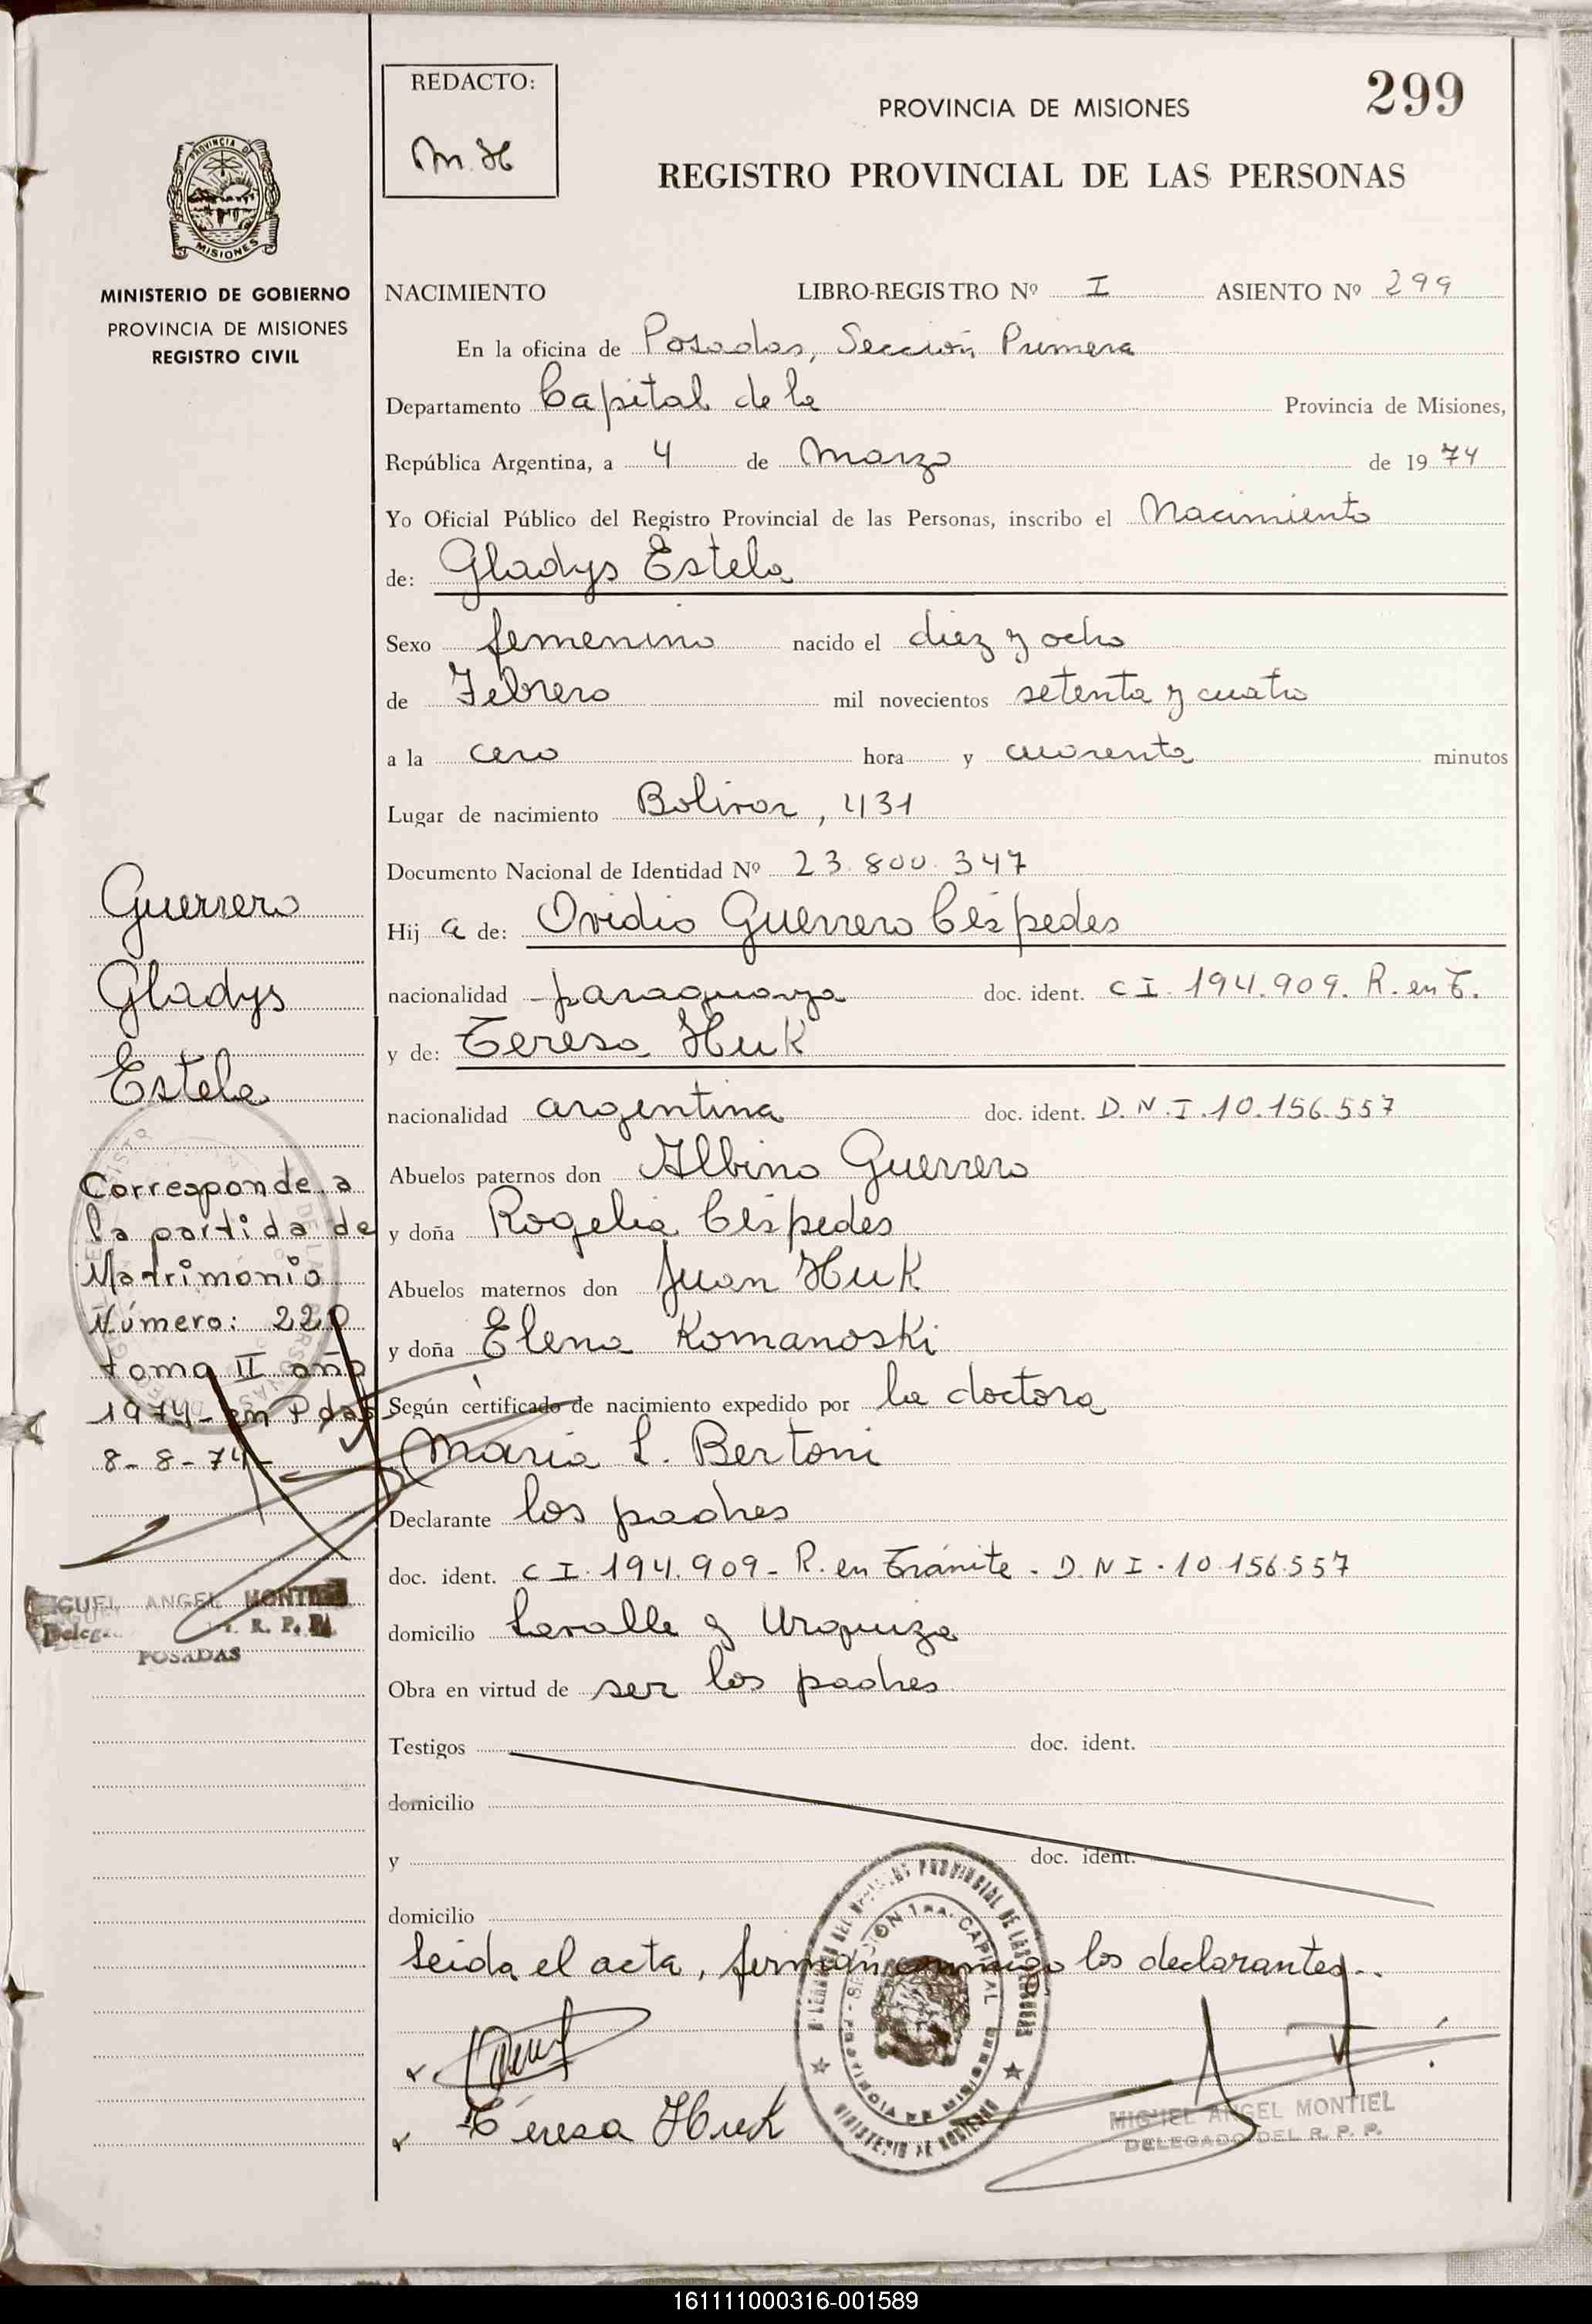 REDACTO:
M. H
PROVINCIA DE MISIONES
299
REGISTRO PROVINCIAL DE LAS PERSONAS
PROVINCIA DE
MISIONES
MINISTERIO DE GOBIERNO
PROVINCIA DE MISIONES
REGISTRO CIVIL
NACIMIENTO LIBRO-REGISTRO Nº I ASIENTO Nº 299
En la oficina de Posadas, Sección Primera
Departamento Capital de la Provincia de Misiones,
República Argentina, a 4 de Marzo de 1974
Yo Oficial Público del Registro Provincial de las Personas, inscribo el Nacimiento
de: Gladys Estela
Sexo femenino nacido el diez y ocho
de Febrero mil novecientos setenta y cuatro
a la cero hora y cuarenta minutos
Lugar de nacimiento Bolivar, 431
Documento Nacional de Identidad Nº 23.800.347
Hij a de: Ovidio Guerrero Céspedes
nacionalidad paraguaya doc. ident. C I. 194.909. R. en T.
y de: Teresa Huk
nacionalidad argentina doc. ident. D.N.I. 10.156.557
Abuelos paternos don Albino Guerrero
y doña Rogelia Céspedes
Abuelos maternos don Juan Huk
y doña Elena Komanoski
Según certificado de nacimiento expedido por la doctora
Maria L. Bertoni
Declarante los padres
doc. ident. C I. 194.909 - R. en Trámite - D.N I. 10.156.557
domicilio Lavalle y Urquiza
Obra en virtud de ser los padres
Testigos doc. ident.
domicilio
y doc. ident.
domicilio
Leida el acta, firman conmigo los declarantes.
Teresa Huk
MIGUEL ANGEL MONTIEL
DELEGADO DEL R. P. P.
Guerrero
Gladys
Estela
Corresponde a
la partida de
Matrimonio
Número: 220
tomo II año
1974 - en Pdas
8 - 8 - 74 -
MIGUEL ANGEL MONTIEL
R. P. P.
POSADAS
161111000316-001589